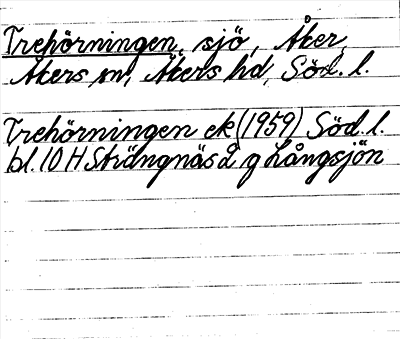 Trehörningen, sjö, Åker,
Åkers sn, Åkers hd, Söd. l.
Trehörningen ek (1959) Söd. l.
bl. 10 H Strängnäs g Långsjön